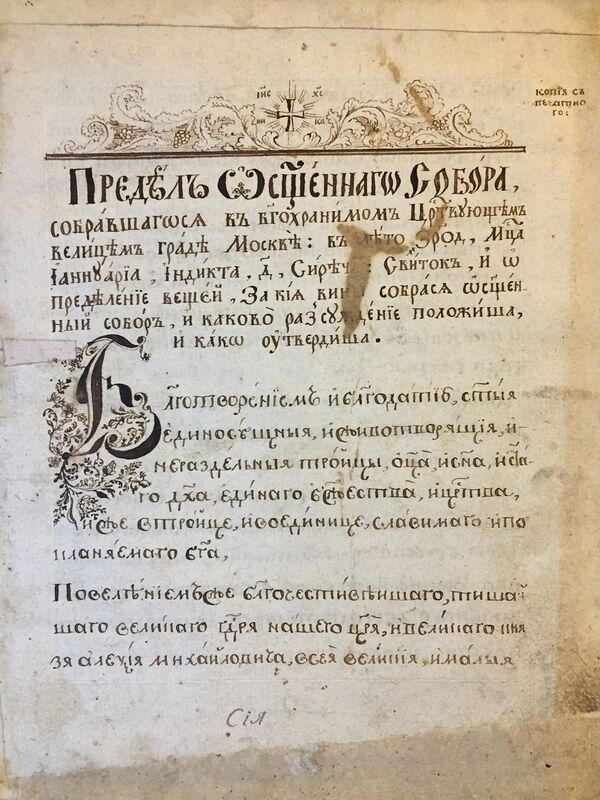 І҃ИС Х҃С
НИ КА
КОПІѦ СЪ
ПЕЧАТНО
ГО:
ПРЕДѢЛЪ ѠСЩ҃ЕННАГѠ СОБО́РА,
СОБРА́ВШАГѠСЯ ВЪ БГ҃ОХРАНИ́МОМЪ ЦР҃ТВУЮЩЕМЪ
ВЕЛИЦѢМЪ ГРА́ДѢ МОСКВѢ̀: ВЪ ЛѢ́ТО ЗРОД, МЦ҃А
ІАННУА́РІА, І҆НДИ́КТА, Д҃, СИ́РѢЧЬ: СВИ́ТОКЪ, И҆ Ѡ
ПРЕДѢЛЕ́НІЕ ВЕЩЕ́Й, ЗА КІ́Я ВИН СОБРА́СЯ ѠСЩ҃ЕН-
НЫЙ СОБО́РЪ, И КАКОВО̀ РАЗСУЖДЕ́НІЕ ПОЛОЖИ́ША,
И́ КА́КѠ ОУТВЕРДИ́ША.
Бл҃готворе́ніемъ и҆ бл҃года́тїю, ст҃ы́я
единосу́щныя, и҆ живо творя́щїя, и҆
нераздѣ́льныя тро́ицы, о҆ц҃а̀, и҆ сн҃а, и҆ ст҃а-
го дх҃а, еди́наго бж҃ества̀, и҆ цр҃тва,
и҆же в тро́ице, и҆ во едини́це, сла́вимаго и҆ по
кланя́емаго бг҃а,
Повелѣ́ніемъ же бл҃гочести́вѣйшаго, тиша́й
шаго вели́каго гд҃ря на́шего цр҃я̀, и҆ вели́каго кня
зя алеѯі́я миха́йловича, всея̀ вели́кїя, и҆ ма́лыя
Сїя